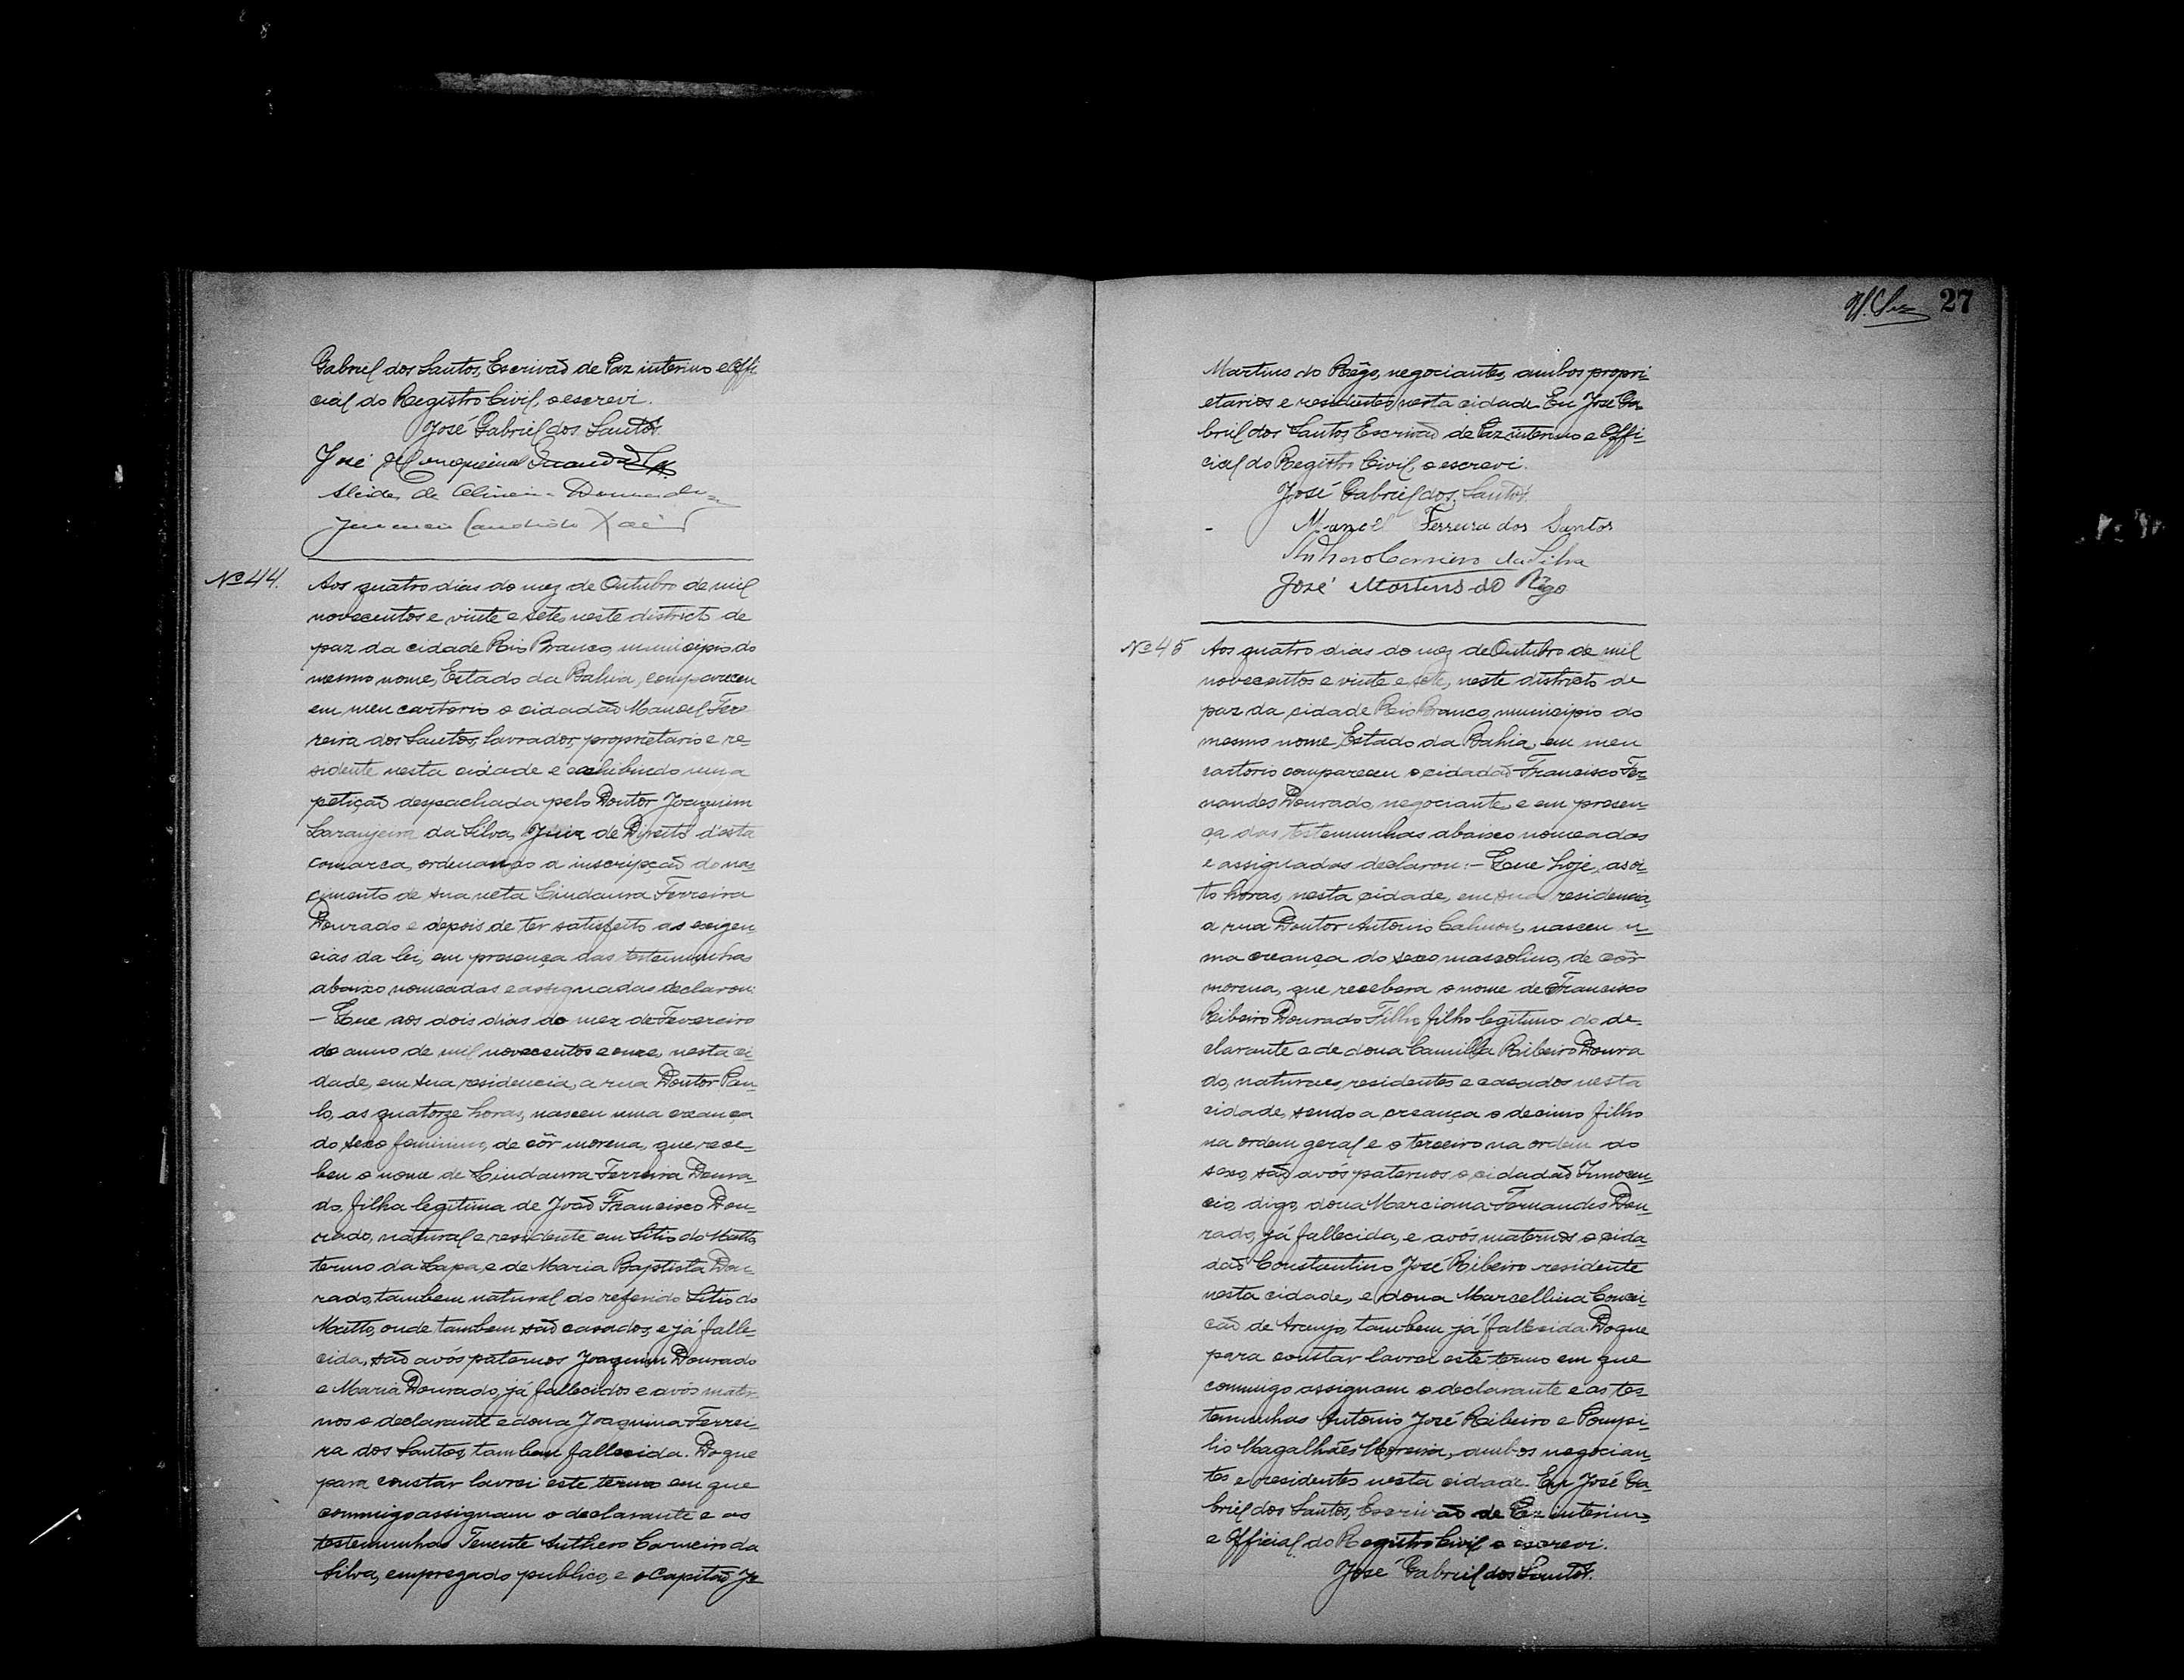 Gabriel dos Santos, Escrivaõ de Paz interino e Offi
cial do Registro Civil, o escrevi.
José Gabriel dos Santos
José
Alcides de Oliveira Dourado
Candido
Nº 44.
Aos quatro dias do mez de Outubro de mil
novecentos e vinte e sete, neste districto de
paz da cidade Rio Branco, municipio do
mesmo nome, Estado da Bahia, compareceu
em meu cartorio o cidadaõ Manoel Fer-
reira dos Santos, lavrador, proprietario e re-
sidente nesta cidade e exhibindo uma
petiçaõ despachada pelo Doutor Joaquim
Laranjeira da Silva, Juiz de Direito d'esta
comarca, ordenando a inscripçaõ do nas-
cimento de sua neta Lindaura Ferreira
Dourado e depois de ter satisfeito as exigen-
cias da lei, em presença das testemunhas
abaixo nomeadas e assignadas declarou:
– Que aos dois dias do mez de Fevereiro
do anno de mil novecentos e onze, nesta ci-
dade, em sua residencia, a rua Doutor Pau-
lo, as quatorze horas, nasceu uma creança
do sexo feminino, de côr morena, que rece-
beu o nome de Lindaura Ferreira Doura-
do, filha legitima de Joaõ Francisco Dou-
rado, natural e residente em Sitio do Matto,
termo da Lapa, e de Maria Baptista Dou-
rado, tambem natural do referido Sitio do
Matto, onde tambem saõ casados, e já falle-
cida, saõ avós paternos Joaquim Dourado
e Maria Dourado, já fallecidos e avós mater-
nos o declarante e dona Joaquina Ferrei-
ra dos Santos, tambem fallecida. Do que
para constar lavrei este termo em que
commigo assignam o declarante e as
testemunhas Tenente Anthero Carneiro da
Silva, empregado publico, e o Capitaõ Jo
27
Martins do Rêgo, negociante, ambos propri-
etarios e residentes nesta cidade. Eu José Ga-
briel dos Santos, Escrivaõ de Paz interino e Offi-
cial do Registro Civil, o escrevi.
José Gabriel dos Santos.
Manoel Ferreira dos Santos
Anthero Carneiro da Silva
José Martins do Rêgo
Nº 45
Aos quatro dias do mez de Outubro de mil
novecentos e vinte e sete, neste districto de
paz da cidade Rio Branco, municipio do
mesmo nome, Estado da Bahia, em meu
cartorio compareceu o cidadaõ Francisco Fer-
nandes Dourado, negociante, e em presen-
ça das testemunhas abaixo nomeadas
e assignadas declarou: – Que hoje, as oi-
to horas, nesta cidade, em sua residencia,
a rua Doutor Antonio Calmon, nasceu u-
ma creança do sexo mascolino, de côr
morena, que recebera o nome de Francisco
Ribeiro Dourado Filho, filho legitimo do de-
clarante e de dona Camilla Ribeiro Doura
do, naturaes, residentes e casados nesta
cidade, sendo a creança o decimo filho
na ordem geral e o terceiro na ordem do
sexo, saõ avós paternos o cidadaõ Innocen-
cio, digo, dona Marciana Fernandes Dou-
rado, já fallecida, e avós maternos o cida-
daõ Constantino José Ribeiro residente
nesta cidade, e dona Marcellina Concei-
çaõ de Araujo, tambem já fallecida. Do que
para constar lavrei este termo em que
commigo assignam o declarante e as tes-
temunhas Antonio José Ribeiro e Pompi-
lio Magalhães Moreira, ambos negocian-
tes e residentes nesta cidade. Eu José Ga-
briel dos Santos, Escrivaõ de Paz interino
e Official do Registro Civil o escrevi.
José Gabriel dos Santos.